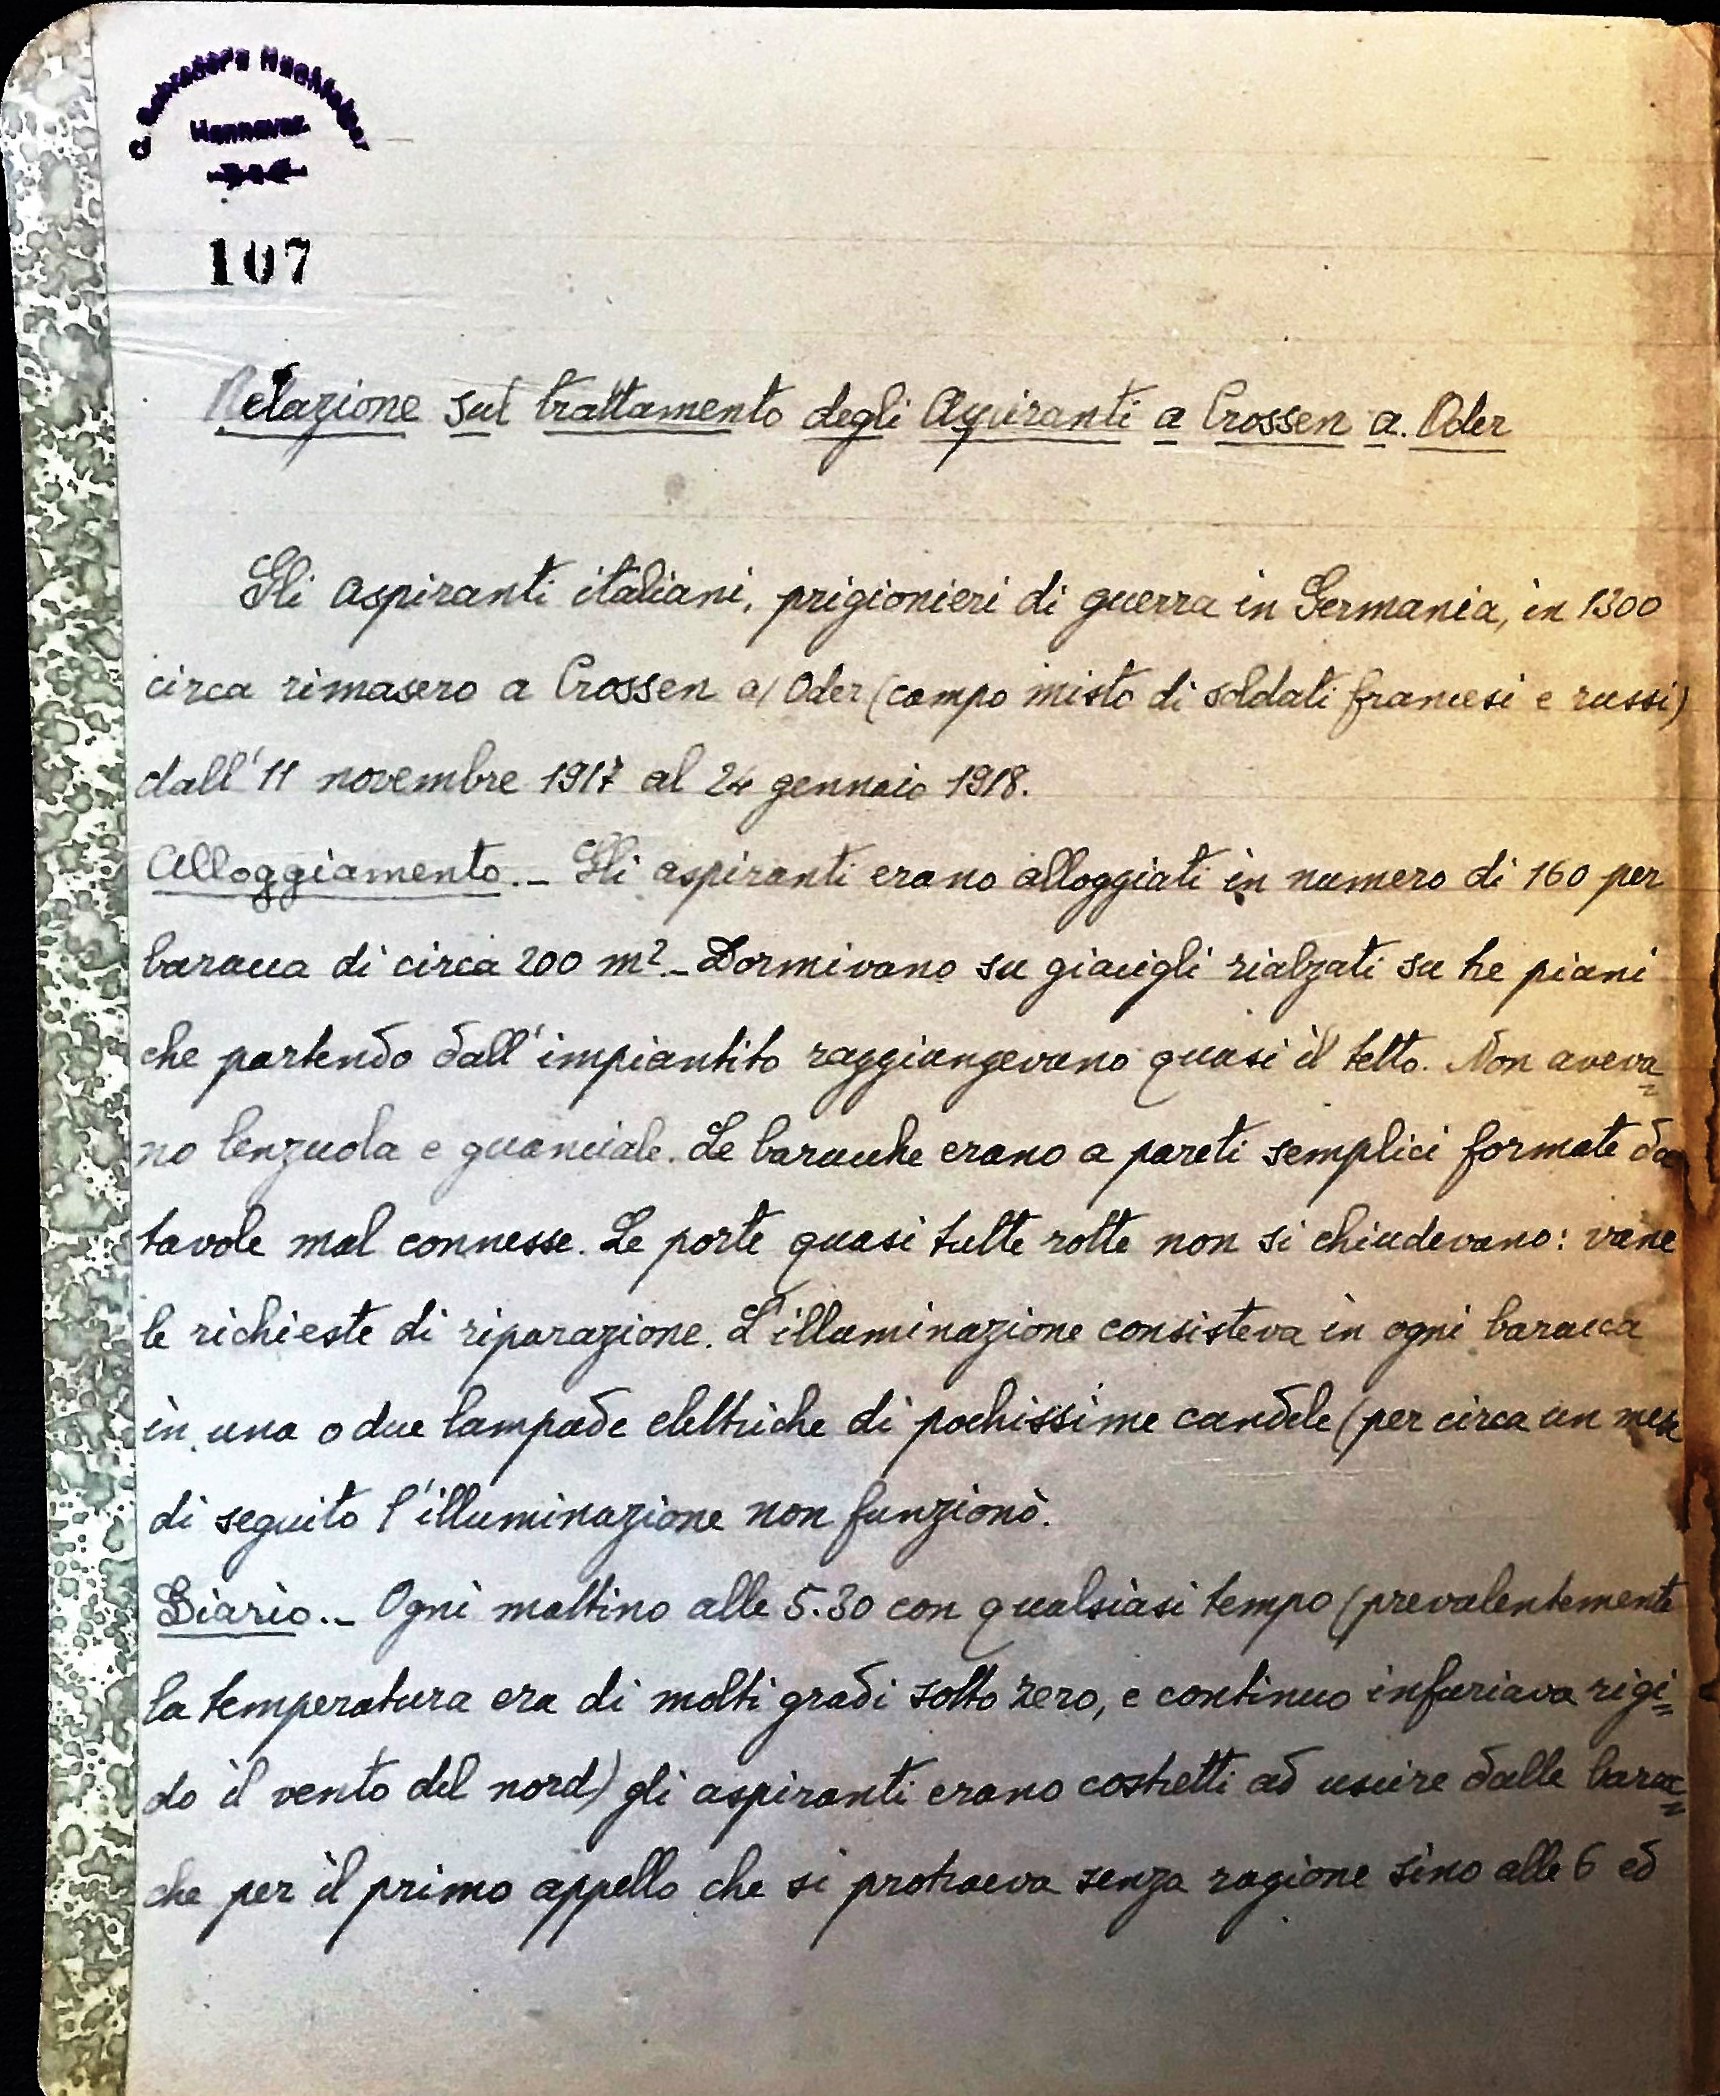 Hannover.
107
Relazione sul trattamento degli Aspiranti a Crossen a. Oder
Gli aspiranti italiani, prigionieri di guerra in Germania, in 1300
circa rimasero a Crossen a/ Oder (campo misto di soldati francesi e russi)
dall'11 novembre 1917 al 24 gennaio 1918.
Alloggiamento._ Gli aspiranti erano alloggiati in numero di 160 per
baracca di circa 200 m²._ Dormivano su giacigli rialzati su tre piani
che partendo dall'impiantito raggiungevano quasi il tetto. Non aveva=
no lenzuola e guanciale. Le baracche erano a pareti semplici formate da
tavole mal connesse. Le porte quasi tutte rotte non si chiudevano: vane
le richieste di riparazione. L'illuminazione consisteva in ogni baracca
in una o due lampade elettriche di pochissime candele (per circa un mese
di seguito l'illuminazione non funzionò.
Diario._ Ogni mattino alle 5.30 con qualsiasi tempo (prevalentemente
la temperatura era di molti gradi sotto zero, e continuo infuriava rigi=
do il vento del nord) gli aspiranti erano costretti ad uscire dalle barac=
che per il primo appello che si protraeva senza ragione sino alle 6 ed